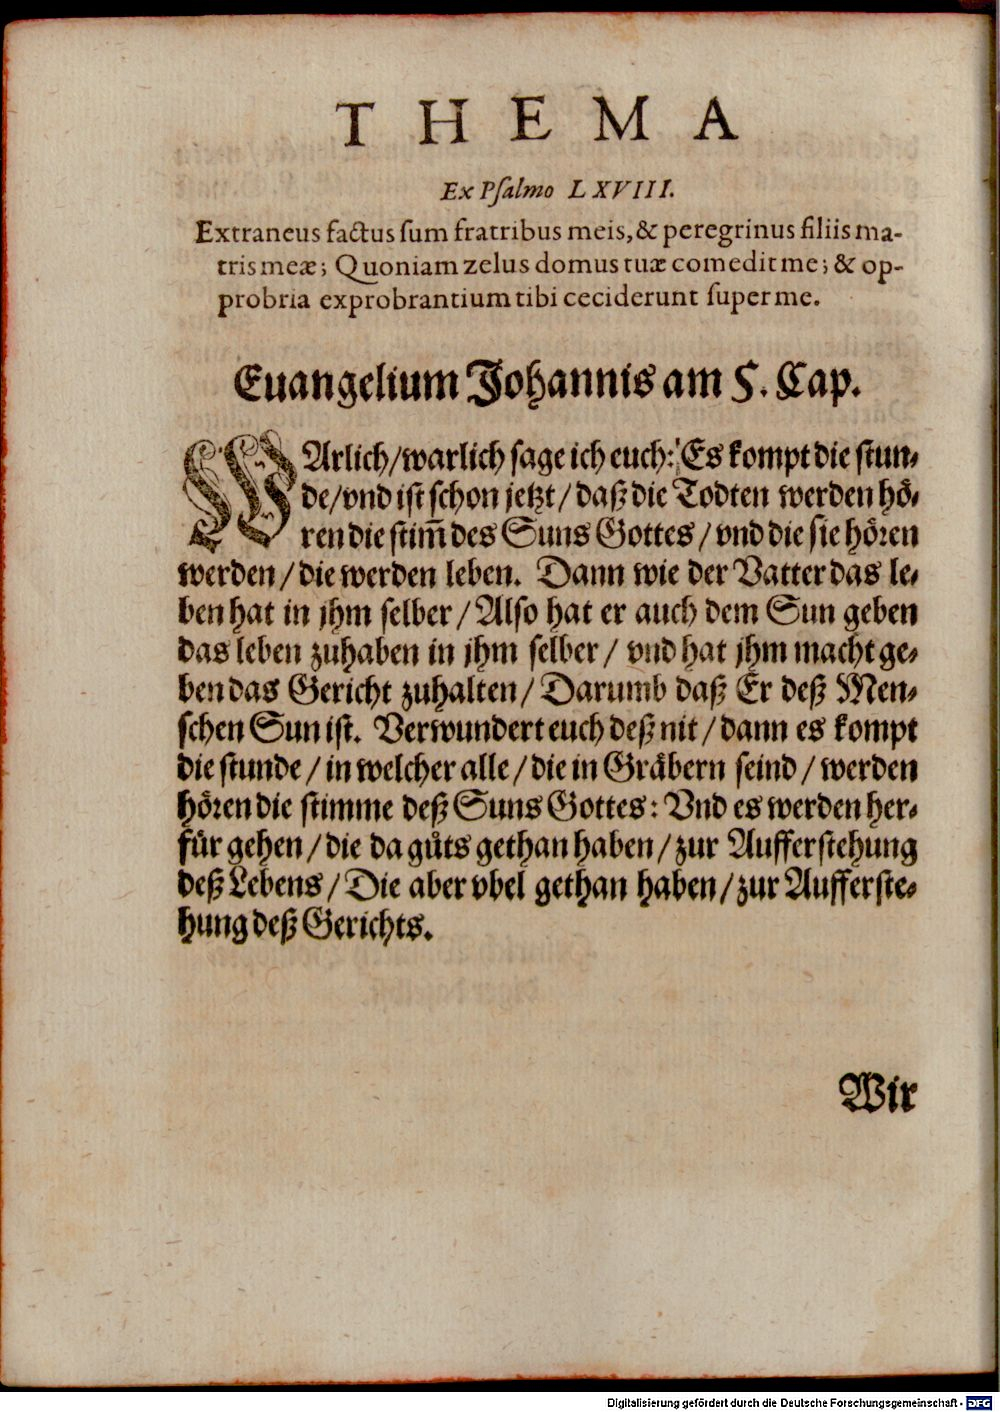 THEMA
Ex Pſalmo LXVIII.
Extraneus factus ſum fratribus meis, & peregrinus filiis ma-
tris meæ; Quoniam zelus domus tuæ comedit me; & op-
probria exprobrantium tibi ceciderunt ſuper me.
Euangelium Johannis am 5. Cap.
WArlich/warlich ſage ich euch: Es kompt die ſtun⸗
de/vnd iſt ſchon jetzt/daß die Todten werden hoͤ⸗
ren die ſtim̃ des Suns Gottes/vnd die ſie hoͤren
werden/die werden leben. Dann wie der Vatter das le⸗
ben hat in jhm ſelber/Alſo hat er auch dem Sun geben
das leben zuhaben in jhm ſelber/ vnd hat jhm macht ge⸗
ben das Gericht zuhalten/Darumb daß Er deß Men⸗
ſchen Sun iſt. Verwundert euch deß nit/dann es kompt
die ſtunde/in welcher alle/die in Graͤbern ſeind/werden
hoͤren die ſtimme deß Suns Gottes: Vnd es werden her⸗
fuͤr gehen/die da guͦts gethan haben/zur Aufferſtehung
deß Lebens/Die aber vbel gethan haben/zur Aufferſte⸗
hung deß Gerichts.
Wir
Digitalisierung gefördert durch die Deutsche Forschungsgemeinschaft - DFG